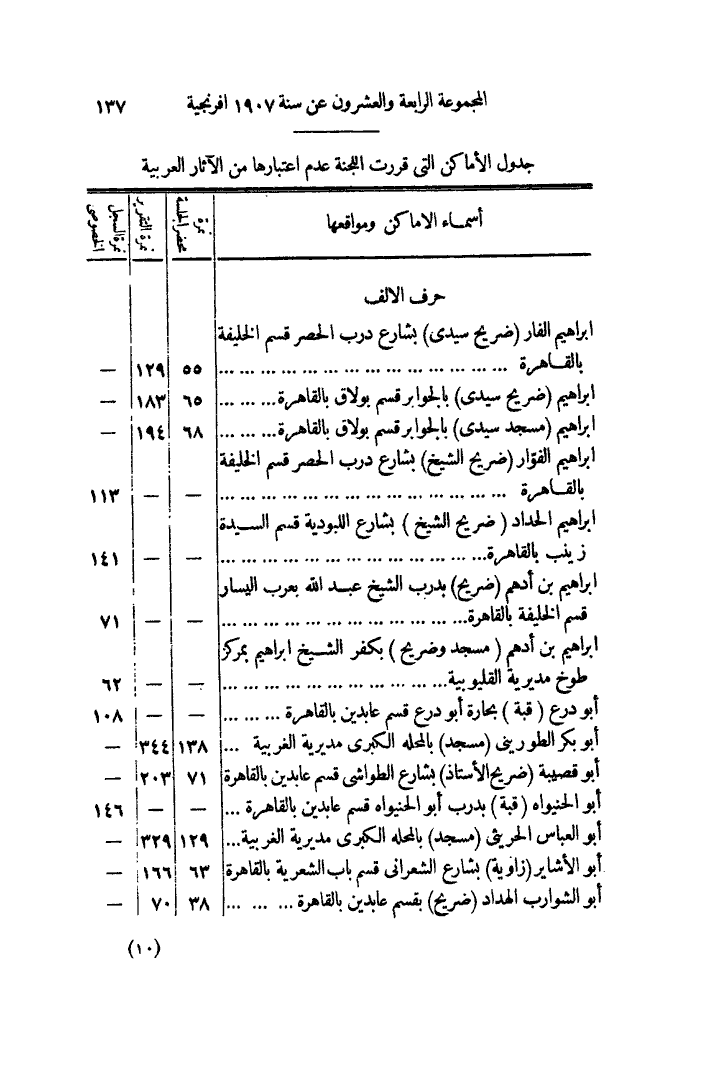 المجموعة الرابعة والعشرون عن سنة ١٩٠٧ افرنجية ١٣٧
جدول الأماكن التى قررت اللجنة عدم اعتبارها من الآثار العربية
أسماء الاماكن ومواقعها | نمرة محضر الجلسة | نمرة التقرير | نمرة السجل الخصوصى
حرف الالف
ابراهيم الفار (ضريح سيدى) بشارع درب الحصر قسم الخليفة
بالقاهرة ... ... ... ... ... ... ... ... ... ... ... ٥٥ ١٢٩ —
ابراهيم (ضريح سيدى) بالجوابر قسم بولاق بالقاهرة... ... ... ٦٥ ١٨٣ —
ابراهيم (مسجد سيدى) بالجوابر قسم بولاق بالقاهرة... ... ... ٦٨ ١٩٤ —
ابراهيم الفوّار (ضريح الشيخ) بشارع درب الحصر قسم الخليفة
بالقاهرة ... ... ... ... ... ... ... ... ... ... ... — — ١١٣
ابراهيم الحداد ( ضريح الشيخ ) بشارع اللبودية قسم السيدة
زينب بالقاهرة... ... ... ... ... ... ... ... ... ... — — ١٤١
ابراهيم بن أدهم (ضريح) بدرب الشيخ عبد الله بعرب اليسار
قسم الخليفة بالقاهرة... ... ... ... ... ... ... ... ... — — ٧١
ابراهيم بن أدهم ( مسجد وضريح ) بكفر الشيخ ابراهيم بمركز
طوخ مديرية القليوبية... ... ... ... ... ... ... ... ... — — ٦٢
أبو درع ( قبة ) بحارة أبو درع قسم عابدين بالقاهرة ... ... ... — — ١٠٨
أبو بكر الطورينى (مسجد) بالمحله الكبرى مديرية الغربية ... ١٣٨ ٣٤٤ —
أبو قصيبة (ضريح الأستاذ) بشارع الطواشى قسم عابدين بالقاهرة ٧١ ٢٠٣ —
أبو الحنيواه (قبة) بدرب أبو الحنيواه قسم عابدين بالقاهرة ... — — ١٤٦
أبو العباس الحريثى (مسجد) بالمحله الكبرى مديرية الغربية... ١٢٩ ٣٢٩ —
أبو الأشاير (زاوية) بشارع الشعرانى قسم باب الشعرية بالقاهرة ٦٣ ١٦٦ —
أبو الشوارب الهداد (ضريح) بقسم عابدين بالقاهرة ... ... ... ٣٨ ٧٠ —
(١٠)